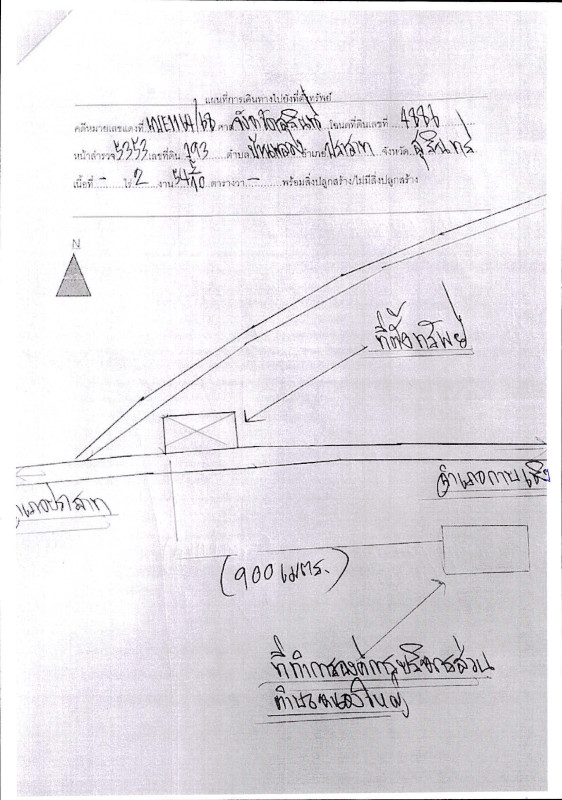 แผนที่การเดินทางไปยังที่ตั้งทรัพย์
คดีหมายเลขแดงที่ ศาล จังหวัดสุรินทร์ โฉนดที่ดินเลขที่ 4886
หน้าสำรวจ 5353 เลขที่ดิน 793 ตำบล บ้านพลวง อำเภอ ปราสาท จังหวัด สุรินทร์
เนื้อที่ - ไร่ 2 งาน 54 5/10 ตารางวา - พร้อมสิ่งปลูกสร้าง/ไม่มีสิ่งปลูกสร้าง
N
ที่ตั้งทรัพย์
อำเภอกาบเชิง
อำเภอปราสาท
(900 เมตร.)
ที่ทำการองค์การบริหารส่วน